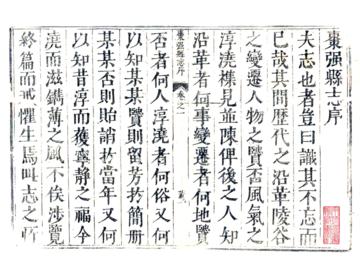 棗强縣志序
夫志也者豈曰識其不忘而
已哉其間歷代之沿革陵谷
之變遷人物之賢否風氣之
淳澆㯶見並陳俾後之人知
沿革者何事變遷者何地賢
棗强縣志序 卷之一
否者何人淳澆者何俗又何
以知某賢則留芳於簡册
某某否則貽誚於當年又何
以知昔淳而獲寧静之福今
澆而滋鐫薄之風不俟涉覽
終篇而戒懼生焉叫志之所